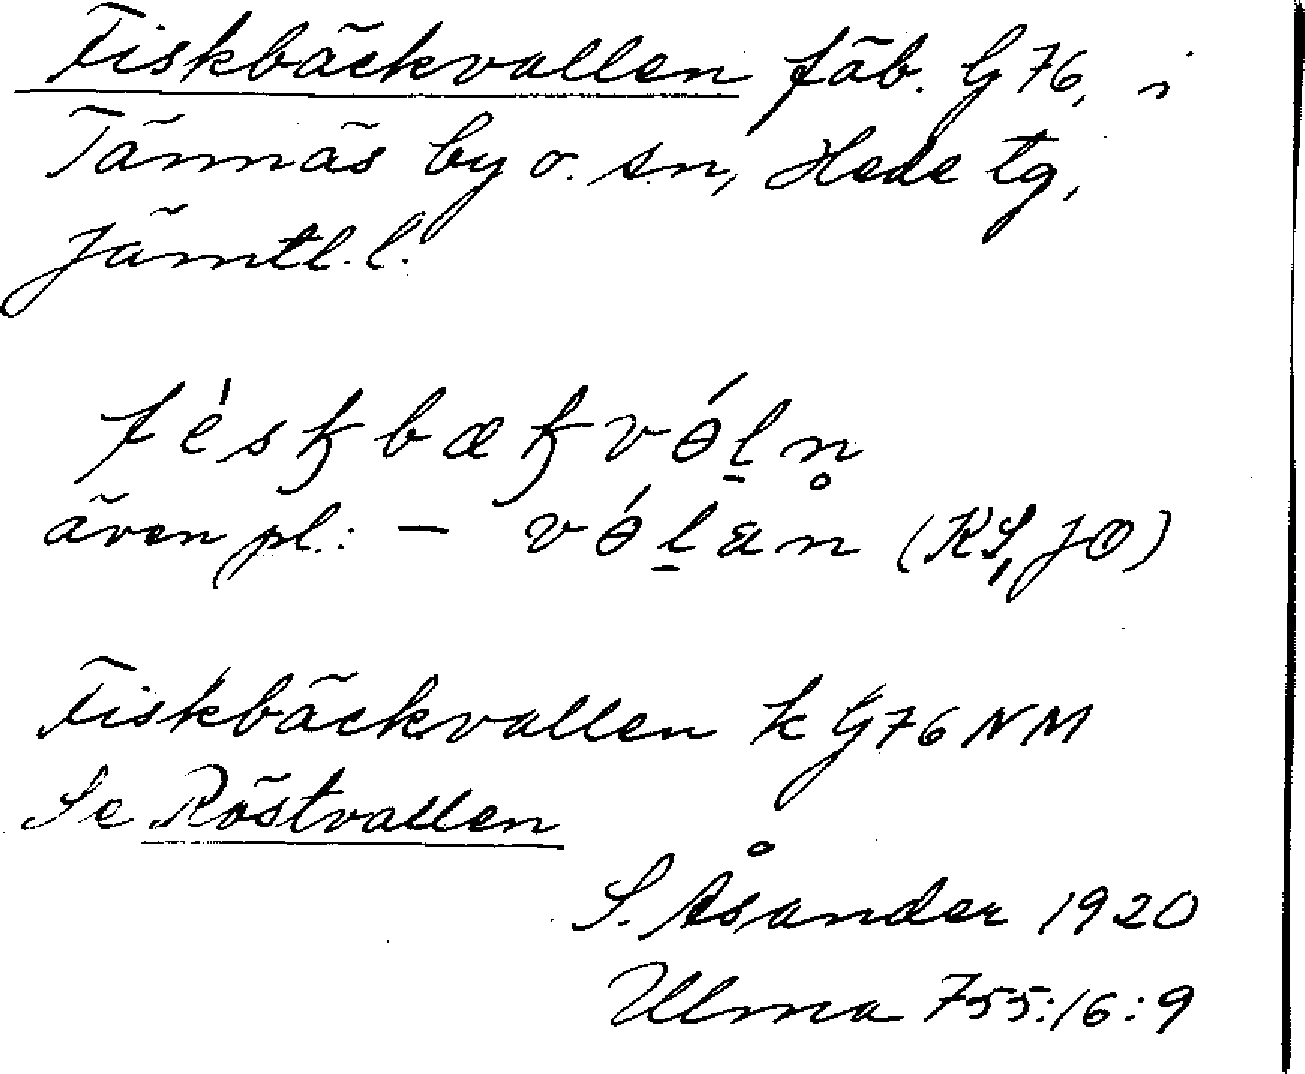 Fiskbäckvallen fäb. G76, i
Tännäs by o. sn, Hede tg,
Jämtl. l.
även pl.: – (KS, JO)
Fiskbäckvallen k G76 NM
Se Röstvallen
S. Åsander 1920
Ulma 755:16:9